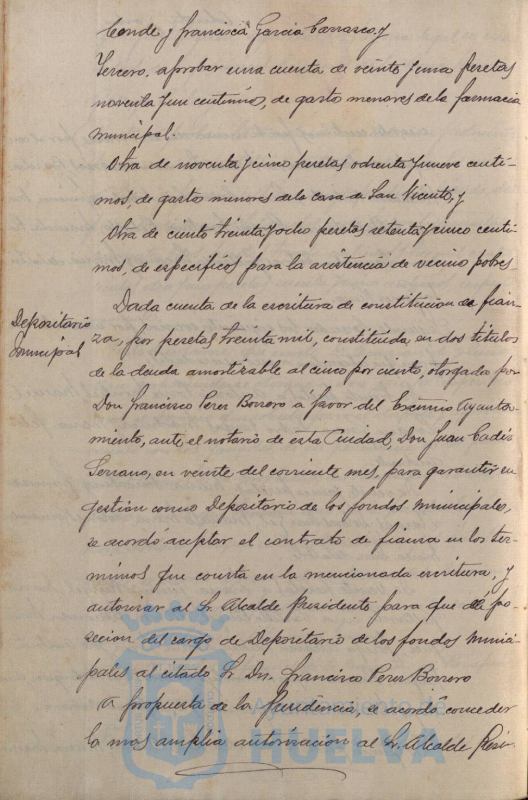 Conde y Francisca Garcia Carrasco, y
Tercero. aprobar una cuenta de veinte y una pesetas
noventa y un centimo, de gasto menores de la farmacia
municipal.
Otra de noventa y cinco pesetas ochenta y nueve centi-
mos, de gasto menores de la casa de San Vicente, y
Otra de ciento treinta y ocho pesetas setenta y cinco centi
mos, de especificos para la asistencia de vecino pobres.
Depositario
municipal
Dada cuenta de la escritura de constitucion de fian-
za, por pesetas treinta mil, constituida, en dos titulos
de la deuda amortizable al cinco por ciento, otorgada por
Don Francisco Perez Borrero a favor del Excmo Ayunta-
miento, ante el notario de esta Ciudad, Don Juan Cadiz
Serrano, en veinte del corriente mes, para garantir su
gestion como Depositario de los fondos municipales,
se acordó aceptar el contrato de fianza en los ter-
minos que consta en la mencionada escritura, y
autorizar al Sr. Alcalde Presidente para que dé po-
sesion del cargo de Depositario de los fondos munici-
pales al citado Sr. Dn. Francisco Perez Borrero
A propuesta de la Presidencia, se acordó conceder
la mas amplia autorizacion al Sr. Alcalde Presi-
Ayuntamiento de
HUELVA